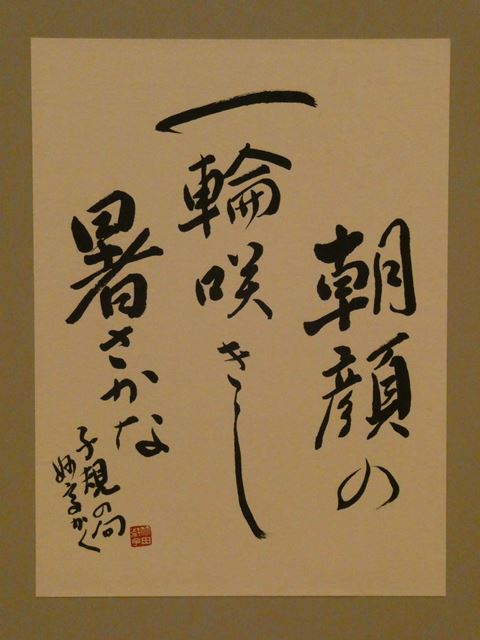 朝顔の
一輪咲きし
暑さかな
子規の句
かく